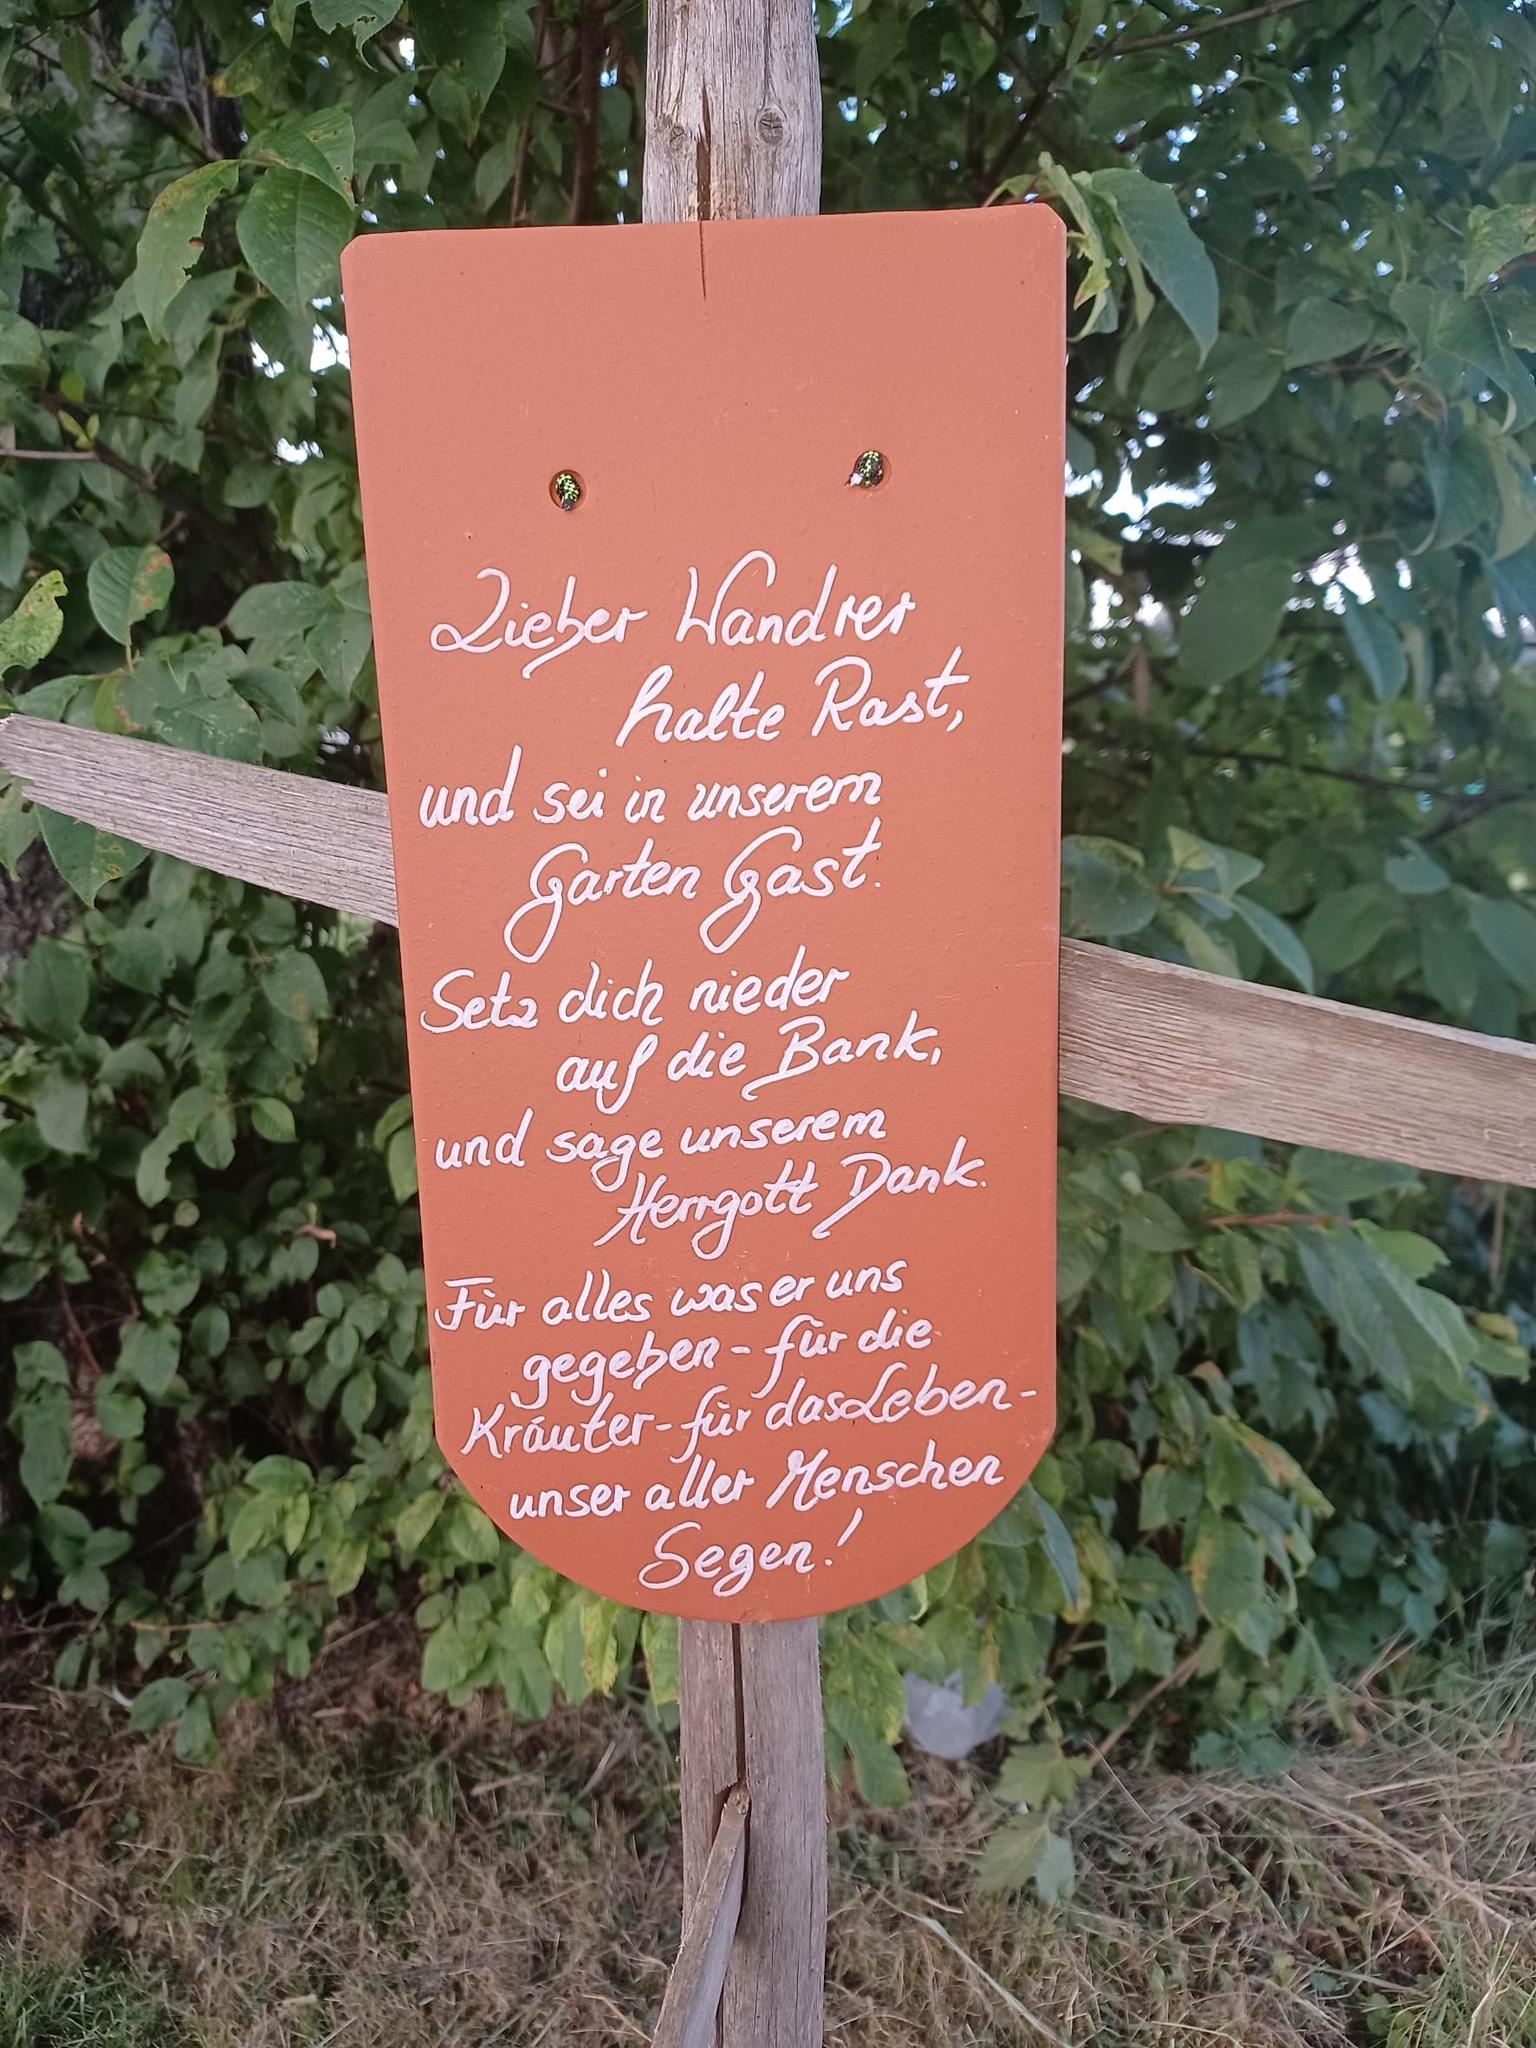 Lieber Wandrer
halte Rast,
und sei in unserem
Garten Gast.
Setz dich nieder
auf die Bank,
und sage unserem
Herrgott Dank.
Für alles was er uns
gegeben - für die
Kräuter - für das Leben -
unser aller Menschen
Segen!